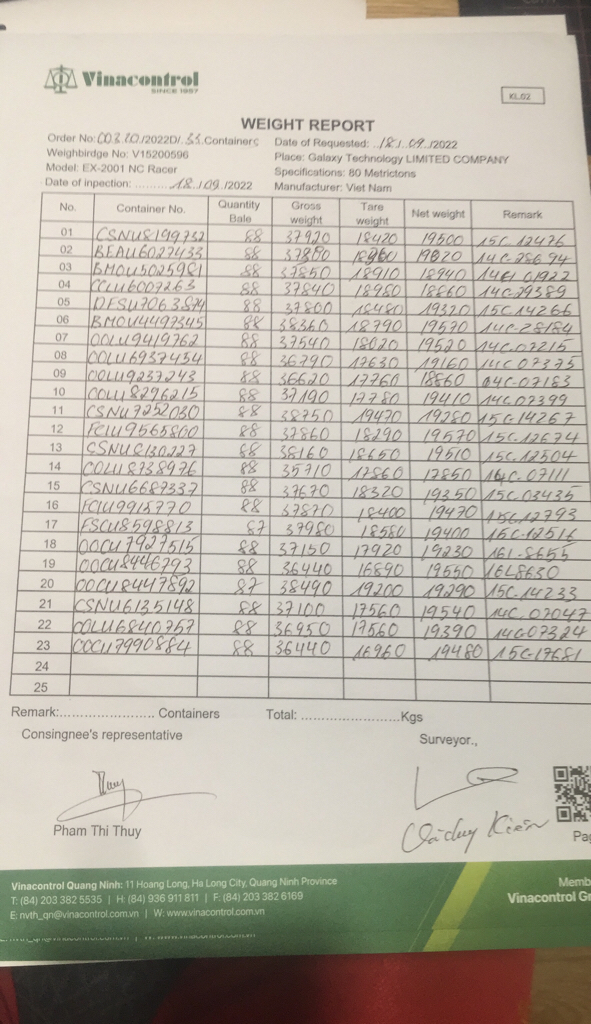 Vinacontrol
SINCE 1957
KL.02
WEIGHT REPORT
Order No: 003.20/2022D/.33.Containers Date of Requested: ../18./.09../2022
Weighbirdge No: V15200596 Place: Galaxy Technology LIMITED COMPANY
Model: EX-2001 NC Racer Specifications: 80 Metrictons
Date of inpection: .........18./09./2022 Manufacturer: Viet Nam
No. Container No. Quantity Bale Gross weight Tare weight Net weight Remark
01 CSNU8199732 88 37920 18420 19500 15C-12476
02 BEAU6027433 88 19020 14C-28694
03 BMOU5025981 88 37850 18910 18940 14C-01922
04 CCLU6007263 88 37840 18980 18860 14C-29389
05 DFSU7063874 88 37800 18480 19320 15C-14266
06 BMOU4497345 88 38360 18790 19570 14C-28184
07 OOLU9419762 88 37540 18020 19520 14C-07215
08 OOLU6937454 88 36790 17630 19160 14C-07375
09 OOLU9237243 88 36620 17760 18860 14C-07183
10 OOLU8296215 88 37190 17780 19410 14C-07399
11 CSNU7252030 88 38750 19470 19280 15C-14267
12 FCIU9565800 88 37860 18290 19570 15C-12674
13 CSNU8130227 88 38160 18650 19510 15C-12504
14 COLU8738976 88 35710 17860 17850 14C-07111
15 CSNU6687337 88 37670 18320 19350 15C-03435
16 FCIU9915770 88 37870 18400 19470 15C-12793
17 FSCU8598813 87 37980 18580 19400 15C-12516
18 OOCU7927515 88 37150 17920 19230 16L-8655
19 OOCU8446793 88 36440 16890 19550 16L8630
20 OOCU8447892 87 38490 19200 19290 15C-14233
21 CSNU6135148 88 37100 17560 19540 14C-07047
22 OOLU6840757 88 36950 17560 19390 14C-07324
23 OOCU7990884 88 36440 16960 19480 15C-17681
24
25
Remark:....................... Containers Total: ........................Kgs
Consingnee's representative Surveyor.,
Thuy
Pham Thi Thuy
Pag
Vinacontrol Quang Ninh: 11 Hoang Long, Ha Long City, Quang Ninh Province
T: (84) 203 382 5535 | H: (84) 936 911 811 | F: (84) 203 382 6169
E: nvth_qn@vinacontrol.com.vn | W: www.vinacontrol.com.vn
Memb
Vinacontrol Gr